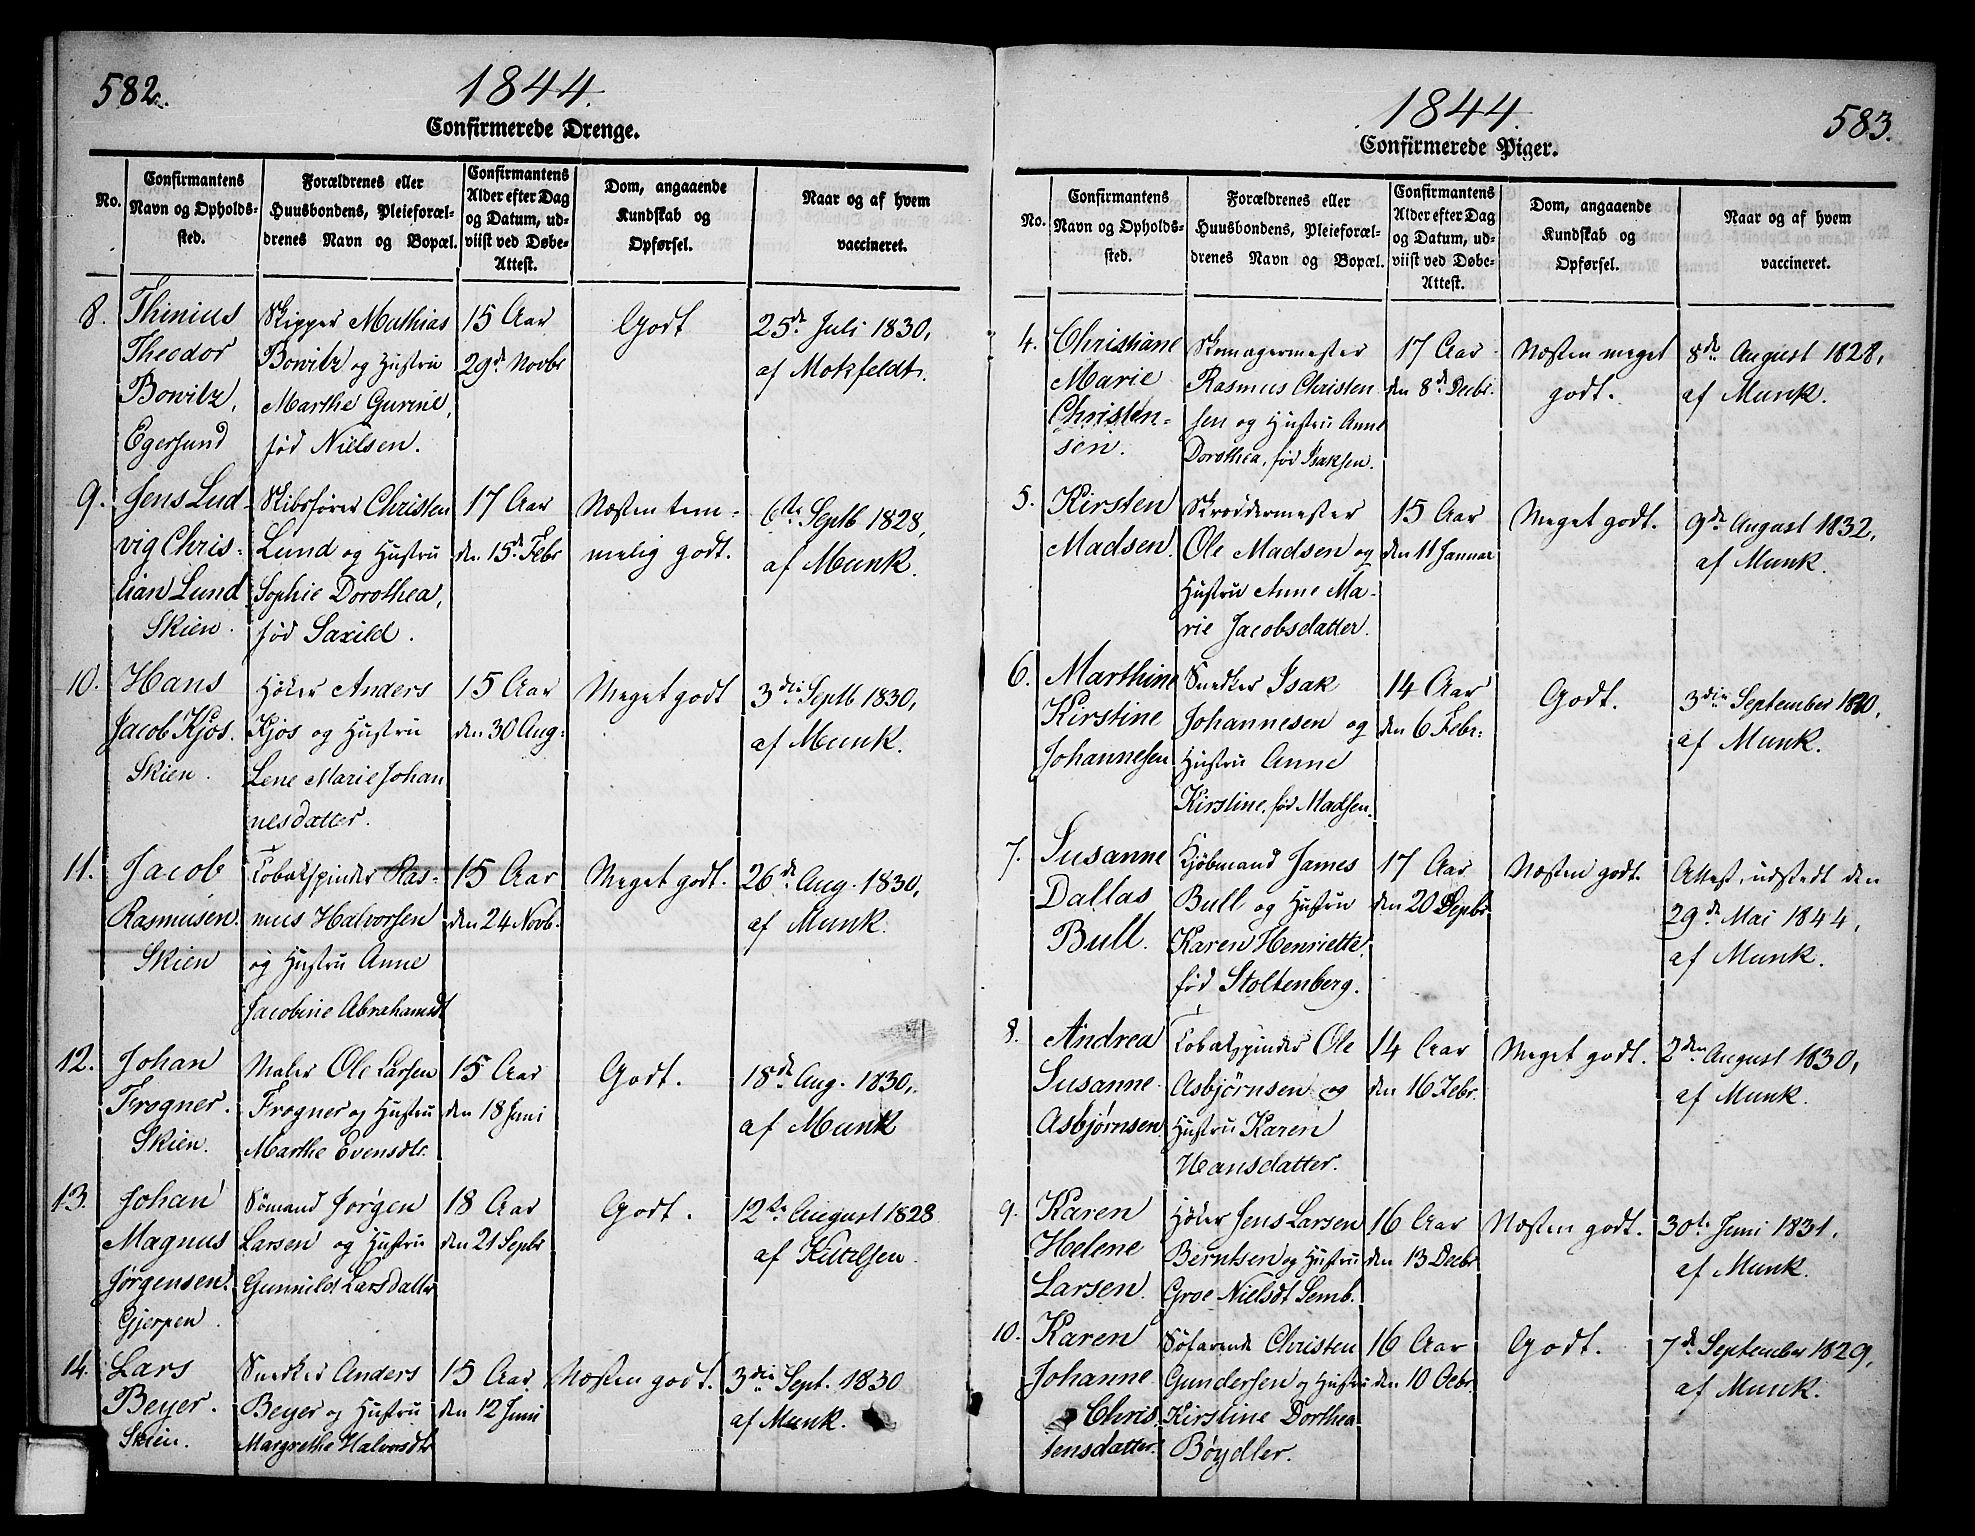 582.
1844.
Confirmerede Drenge.
No.
Confirmantens
Navn og Opholds-
sted.
Forældrenes eller
Huusbondens, Pleieforæl-
drenes Navn og Bopæl.
Confirmantens
Alder efter Dag
og Datum, ud-
viist ved Døbe-
Attest.
Dom, angaaende
Kundskab og
Opførsel.
Naar og af hvem
vaccineret.
8.
Thinius
Theodor
Bowitz,
Egersund
Skipper Mathias
Bowitz og Hustru
Marthe Gurine,
fød Nielsen.
15 Aar
29de Novbr
Godt
25de Juli 1830,
af Motzfeldt.
9.
Jens Lud-
vig Chris-
tian Lund
Skien.
Skibsfører Christen
Lund og Hustru
Sophie Dorothea,
fød Saxild.
17 Aar
den 15de Febr
Næsten tem-
melig godt.
6te Septb 1828,
af Munk.
10.
Hans
Jacob Kjos.
Skien.
Høker Anders
Kjos og Hustru
Lene Marie Johan
nesdatter.
15 Aar
den 30 Aug:
Meget godt
3die Septb 1830,
af Munk.
11.
Jacob
Rasmusen.
Skien
Tobakspinder Ras-
mus Halvorsen
og Hustru Anne
Jacobine Abrahamsdt
15 Aar
den 24 Novb.
Meget godt.
26de Aug. 1830,
af Munk.
12.
Johan
Frogner.
Skien.
Maler Ole Larsen
Frogner og Hustru
Marthe Evensdtr.
15 Aar
den 18 Juni
Godt.
18de Aug. 1830,
af Munk
13.
Johan
Magnus
Jørgensen.
Gjerpen.
Sømand Jørgen
Larsen og Hustru
Gunnild Larsdatter
18 Aar
den 21 Septbr
Godt.
12te August 1828
af
14.
Lars
Beyer.
Skien.
Snedker Anders
Beyer og Hustru
Margrethe Halvorsdtr
15 Aar
den 12 Juni
Næsten godt.
3die Sept. 1830
af Munk.
1844.
583.
Confirmerede Piger.
No.
Confirmantens
Navn og Opholds-
sted.
Forældrenes eller
Huusbondens, Pleieforæl-
drenes Navn og Bopæl.
Confirmantens
Alder efter Dag
og Datum, ud-
viist ved Døbe-
Attest.
Dom, angaaende
Kundskab og
Opførsel.
Naar og af hvem
vaccineret.
4.
Christiane
Marie
Christen-
sen.
Skomagermester
Rasmus Christen
sen og Hustru Anne
Dorothea, fød Isaksen.
17 Aar
den 8de Decbr.
Næsten meget
godt.
8de August 1828,
af Munk.
5.
Kirsten
Madsen.
Skræddermester
Ole Madsen og
Hustru Anne Ma-
rie Jacobsdatter.
15 Aar
den 11 Januar
Meget godt.
9de August 1832,
af Munk.
6.
Marthine
Kirstine
Johannesen
Snedker Isak
Johannesen og
Hustru Anne
Kirstine, fød Madsen.
14 Aar
den 6 Febr.
Godt.
3die September
af Munk.
7.
Susanne
Dallas
Bull.
Kjøbmand James
Bull og Hustru
Karen Henriette,
fød Stoltenberg.
17 Aar
den 20 Septbr
Næsten godt.
Attest, udstedt den
29de Mai 1844,
af Munk.
8.
Andrea
Susanne
Asbjørnsen
Tobakspinder Ole
Asbjørnsen og
Hustru Karen
Hansdatter.
14 Aar
den 16 Febr.
Meget godt.
2den August 1830,
af Munk.
9.
Karen
Helene
Larsen.
Høker Jens Larsen
Berntsen og Hustru
Groe Nielsdt Semb.
16 Aar
den 13 Decbr
Næsten godt.
30te Juni 1831,
af Munk.
10.
Karen
Johanne
Chris
tensdatter.
Søfarende Christen
Gundersen og Hustru
Kirstine Dorthea
Bøydler.
16 Aar
den 10 Octbr.
Godt.
7de September 1829,
af Munk.